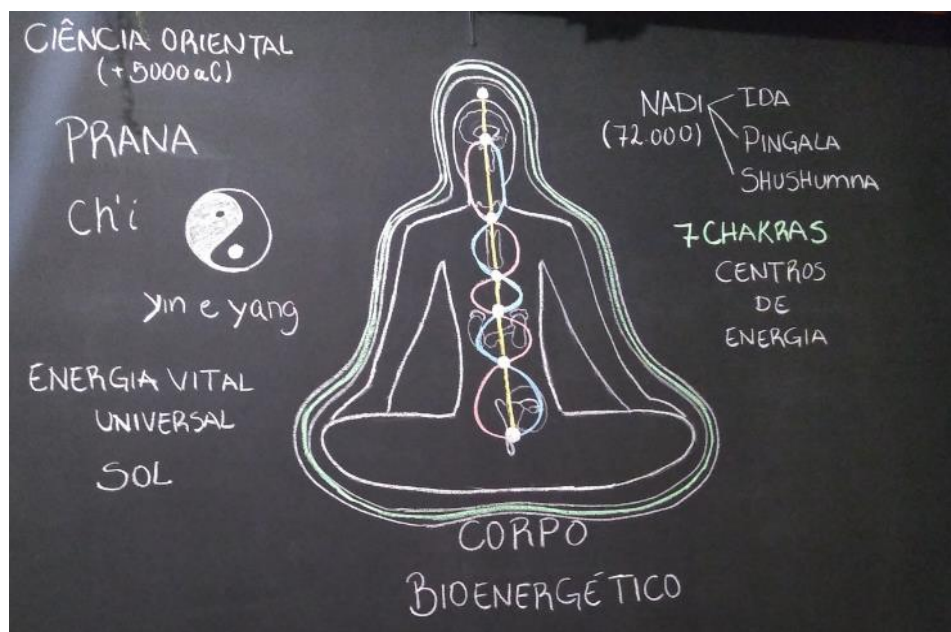 CIÊNCIA ORIENTAL
(+5000 aC)
PRANA
Ch'i
yin e yang
ENERGIA VITAL
UNIVERSAL
SOL
NADI
(72.000)
IDA
PINGALA
SHUSHUMNA
7 CHAKRAS
CENTROS
DE
ENERGIA
CORPO
BIOENERGÉTICO